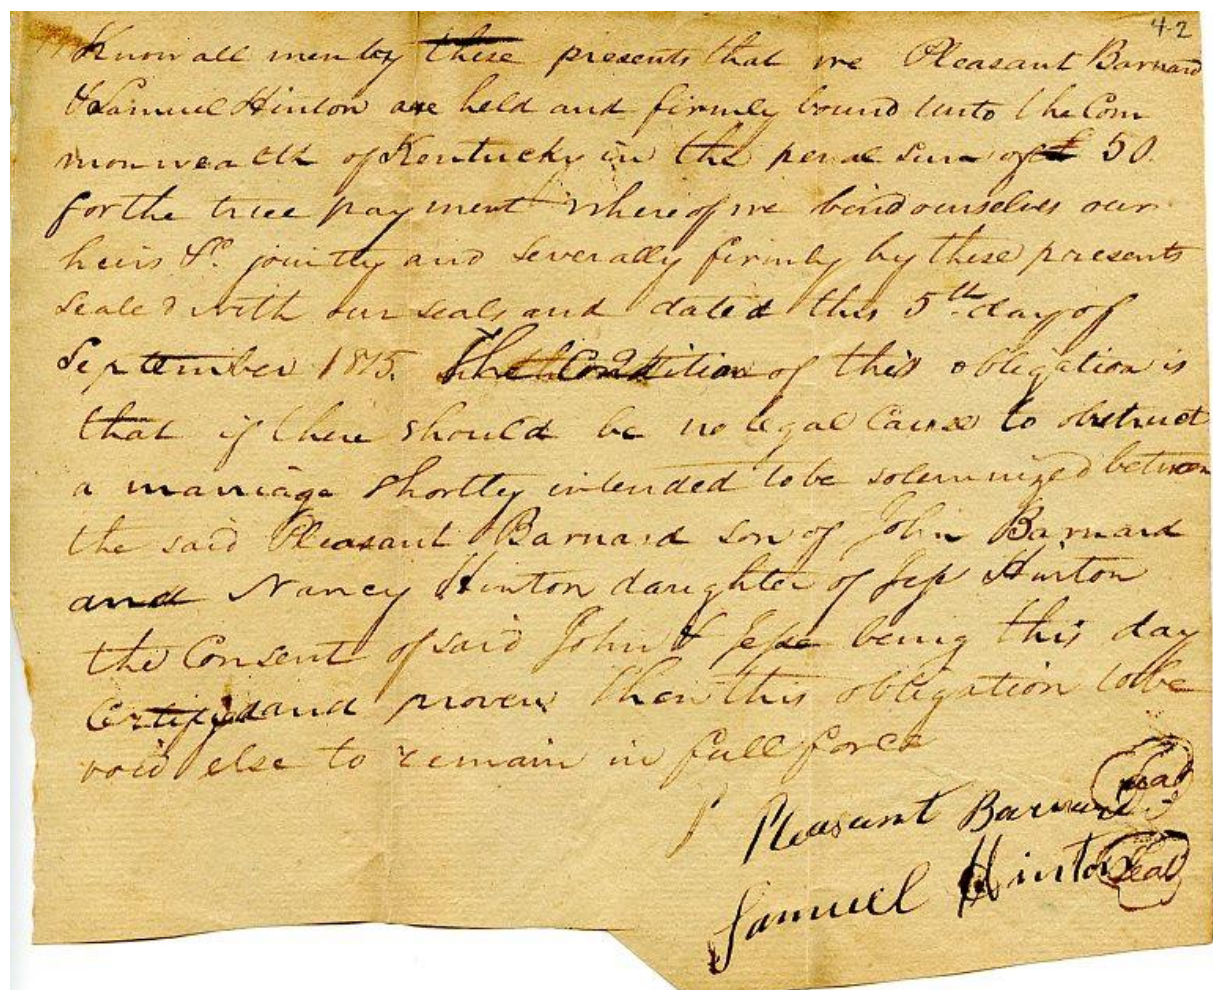 42
Know all men by these presents that we Pleasant Barnard
& Samuel Hinton are held and firmly bound unto the Com
monwealth of Kentucky in the penal sum of £ 50.
for the true payment whereof we bind ourselves our
heirs &c. jointly and severally firmly by these presents
Seale d with our seals and dated this 5th day of
September 1815. The Condition of this obligation is
that if there should be no legal Cause to obstruct
a marriage shortly intended to be solemnized between
the said Pleasant Barnard son of John Barnard
and Nancy Hinton daughter of Jesse Hinton
the Consent of said John & Jesse being this day
Certified and proven then this obligation to be
void else to remain in full force
Pleasant Barnard Seal
Samuel Hinton Seal